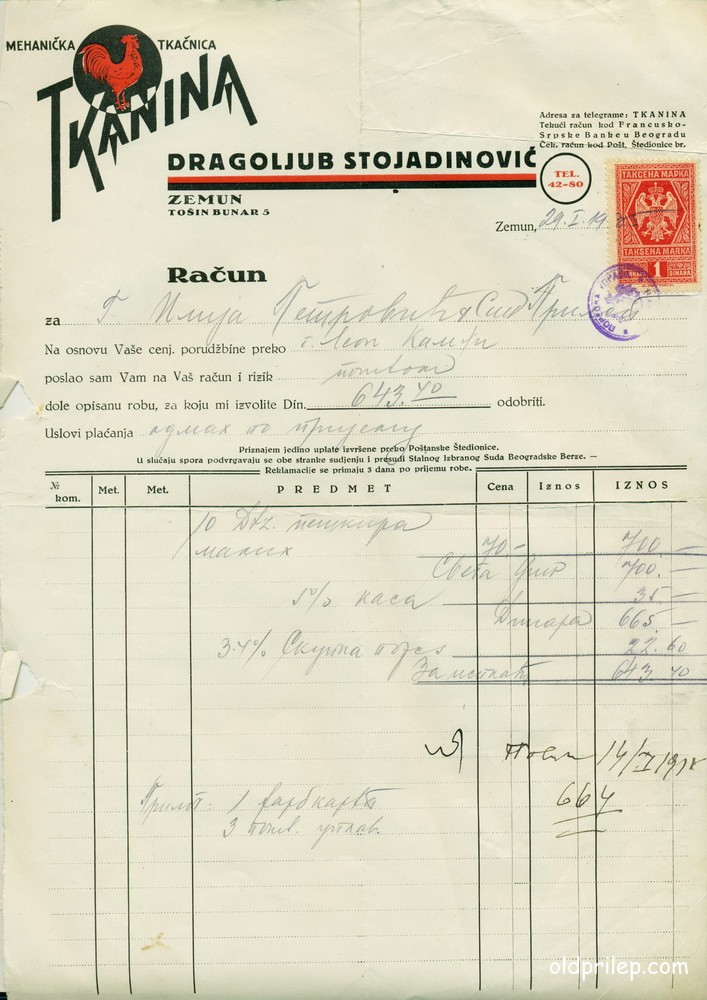 MEHANIČKA TKAČNICA
TKANINA
DRAGOLJUB STOJADINOVIĆ
ZEMUN
TOŠIN BUNAR 5
Adresa za telegrame: TKANINA
Tekući račun kod Francusko-
Srpske Banke u Beogradu
Ček. račun kod Pošt. Štedionice br.
TEL.
42-80
TAKSENA MARKA
ТАКСЕНА МАРКА
1
DINARA
Zemun, 29. I. 19
Račun
za Г. Илија Петровић & Син Прилеп
Na osnovu Vaše cenj. porudžbine preko г. Леон Камхи
poslao sam Vam na Vaš račun i rizik поштом
dole opisanu robu, za koju mi izvolite Din. 643.40 odobriti.
Uslovi plaćanja одмах по пријему
Priznajem jedino uplate izvršene preko Poštanske Štedionice.
U slučaju spora podvrgavaju se obe stranke sudjenju i presudi Stalnog Izbranog Suda Beogradske Berze. —
Reklamacije se primaju 3 dana po prijemu robe.
№ kom. Met. Met. PREDMET Cena Iznos IZNOS
10 Dtz. пешкира
малих 70.- 700.—
Свега Дин 700.—
5% каса 35.—
Динара 665.—
3.4% 22.60
За исплату 643.40
14/II
664
Прилог: 1
3
oldprilep.com